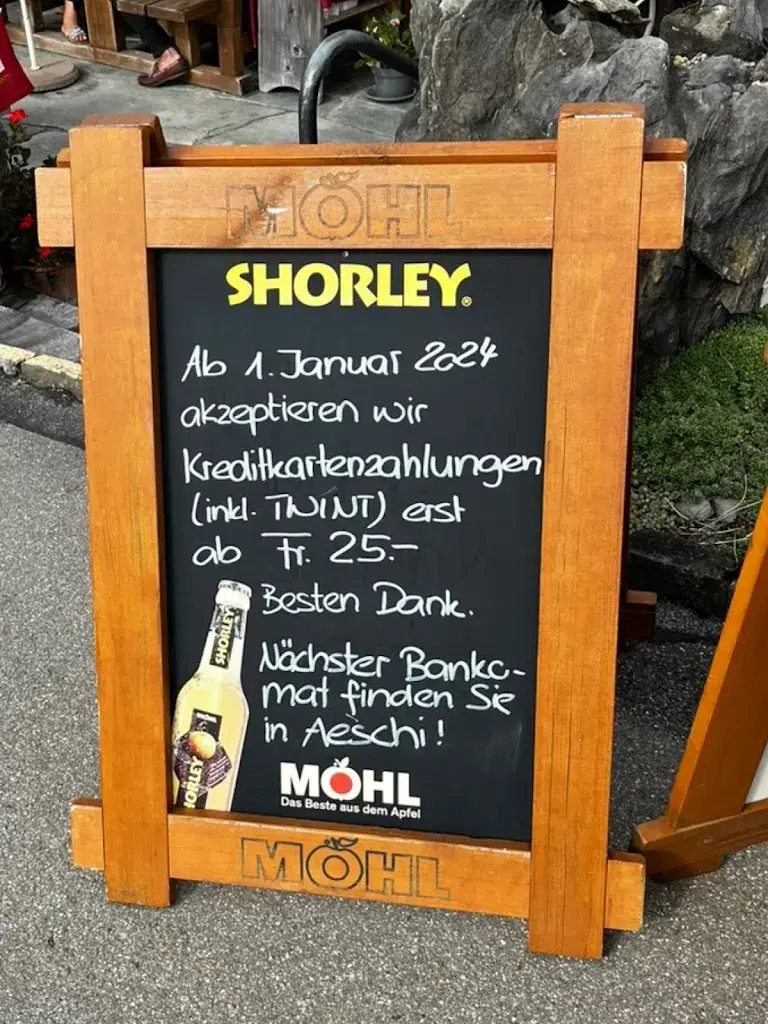 MÖHL
SHORLEY
Ab 1. Januar 2024
akzeptieren wir
Kreditkartenzahlungen
(inkl. TWINT) erst
ab Fr. 25.–
Besten Dank.
Nächster Banko-
mat finden Sie
in Aeschi!
SHORLEY
MÖHL
SHORLEY
MÖHL
Das Beste aus dem Apfel
MÖHL